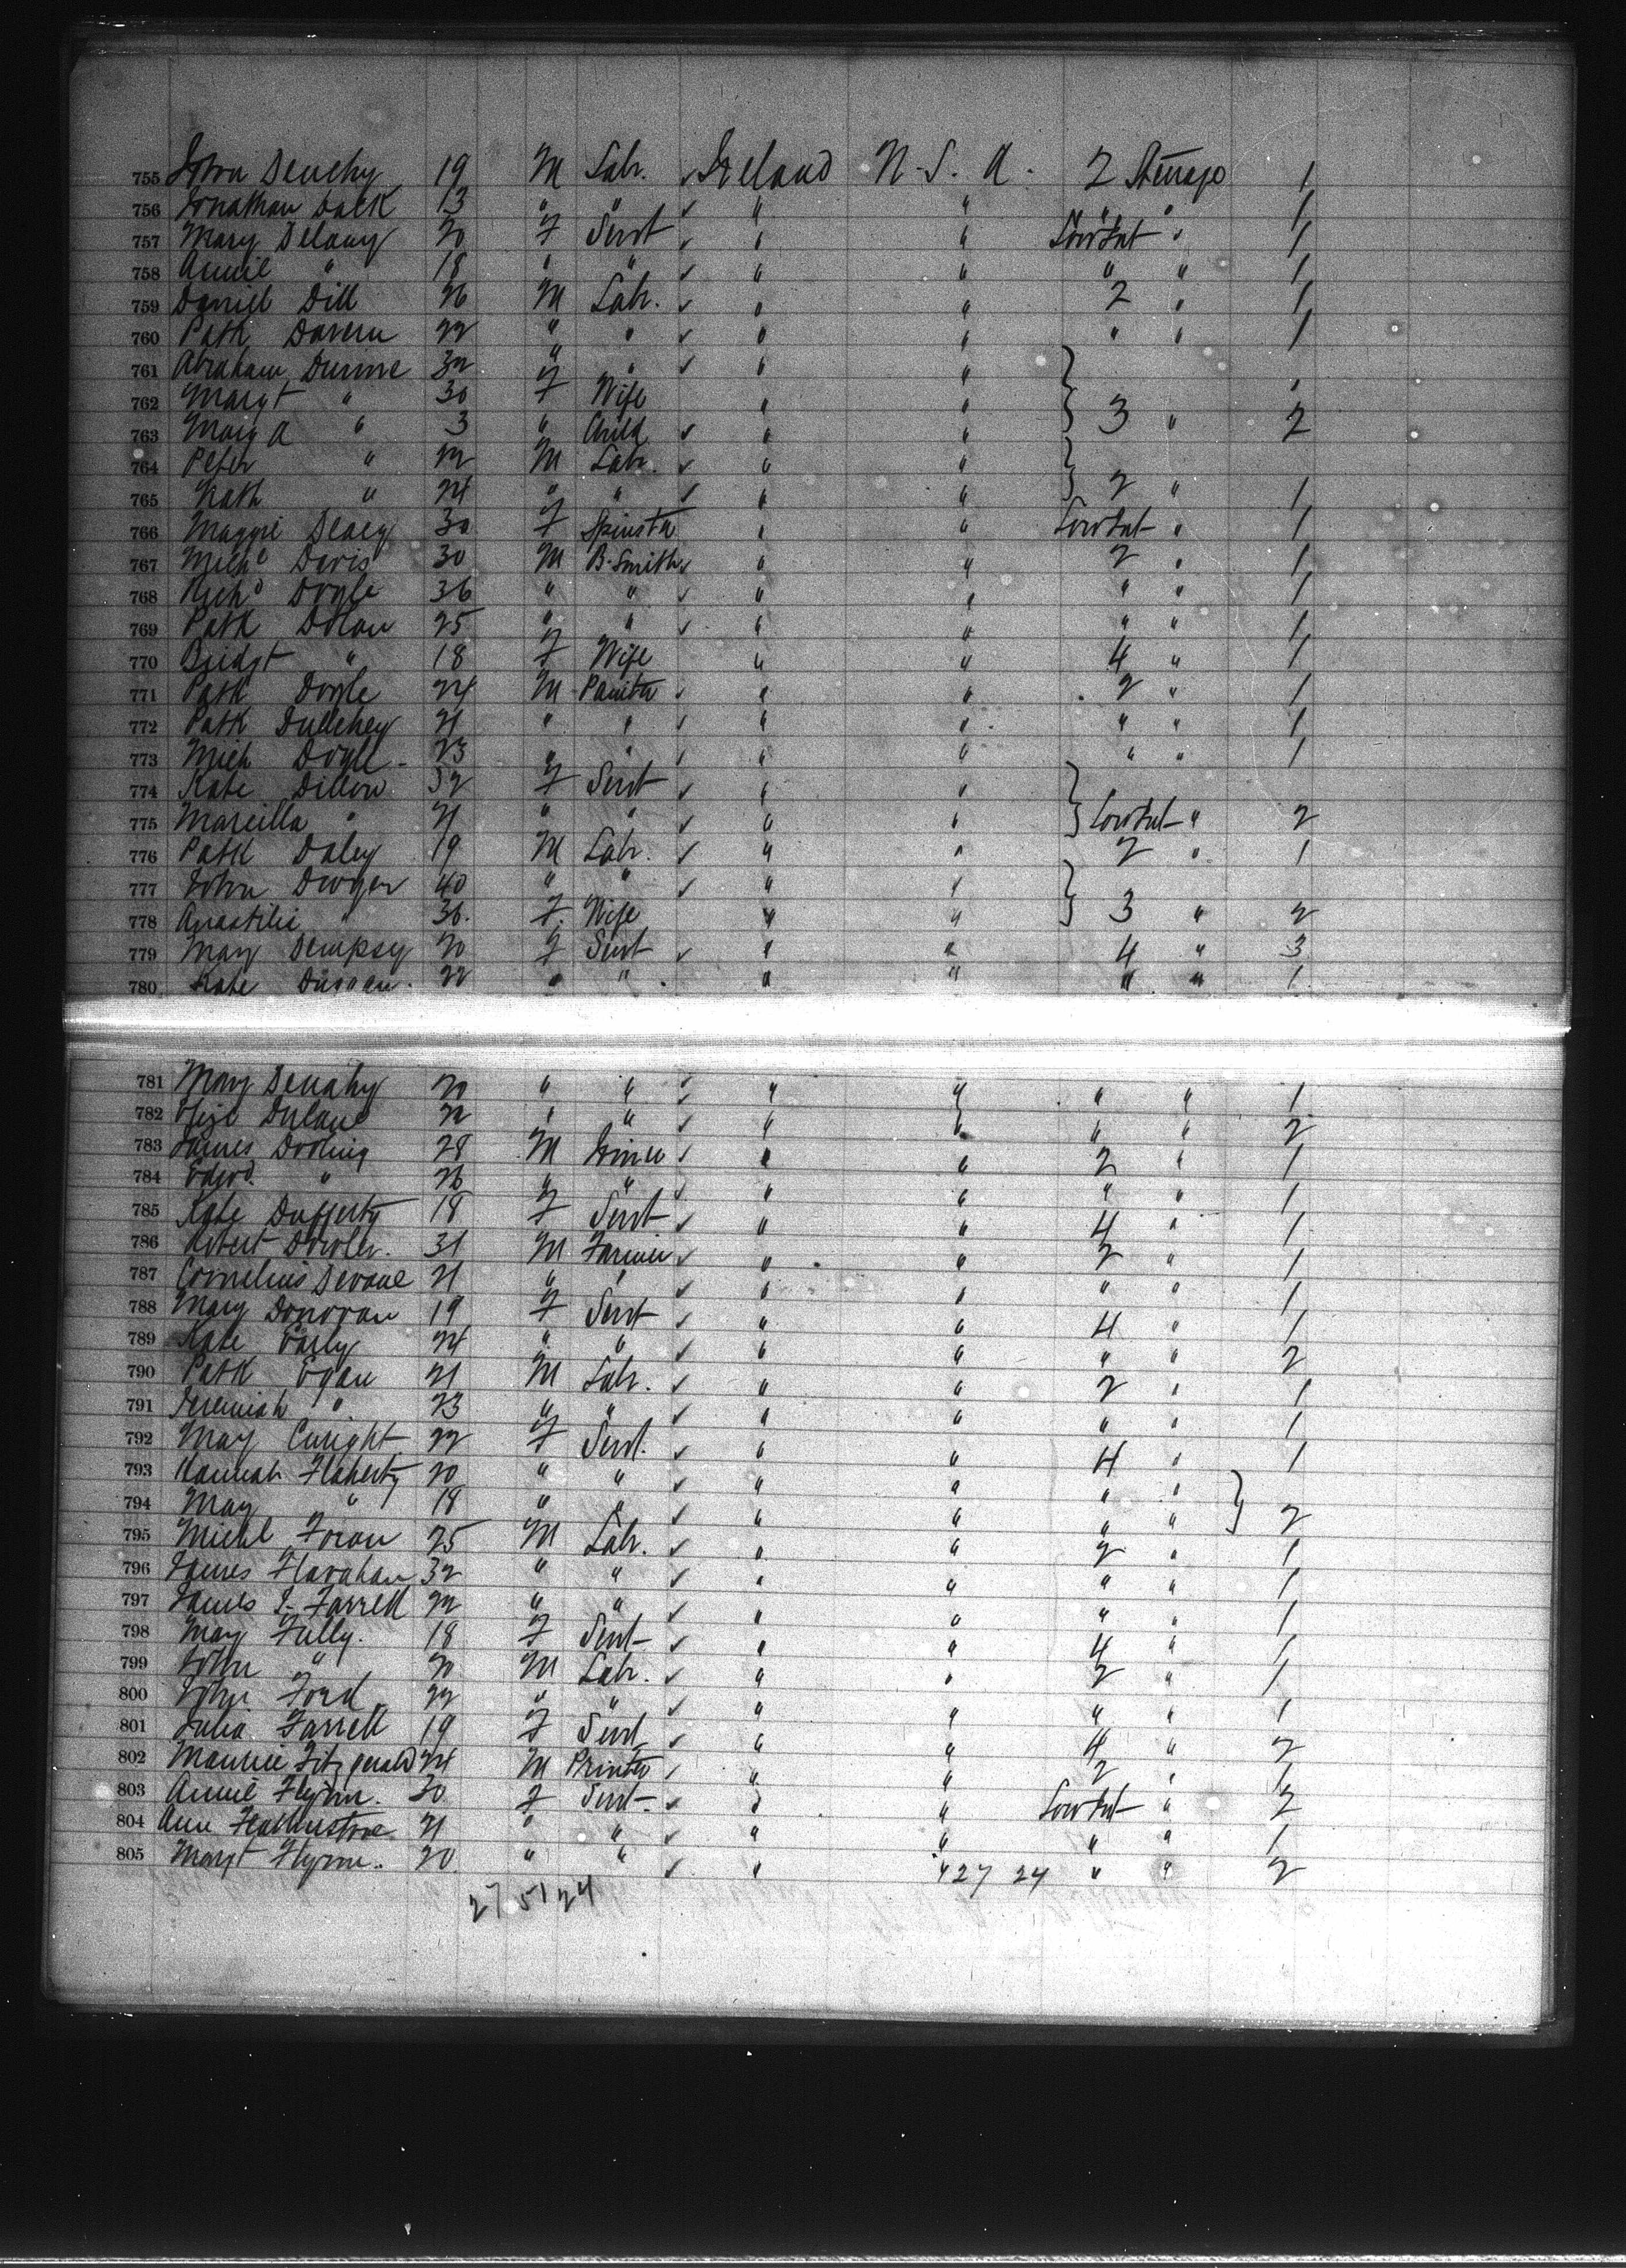 755 John Denehy 19 M Labr. ✓ Ireland U. S. A. 2 Steerage 1
756 Jonathan Dack 13 " " ✓ " " " " 1
757 Mary Delany 20 F Servt ✓ " " Low Int " 1
758 Annie " 18 " " ✓ " " " " 1
759 Daniel Dill 26 M Labr. ✓ " " 2 " 1
760 Patk Davern 22 " " ✓ " " " " 1
761 Abraham Dunne 32 " " ✓ " "
762 Margt " 30 F Wife " " "
763 Mary A " 3 " Child ✓ " " } 3 " 2
764 Peter " 22 M Labr. ✓ " "
765 Kath " 24 " " ✓ " " } 2 " 1
766 Maggie Deacy 30 F Spinster " " Low Int " 1
767 Michl Davis 30 M B. Smith ✓ " " 2 " 1
768 Richd Doyle 36 " " ✓ " " " " 1
769 Patk Dolan 25 " " ✓ " " " " 1
770 Bridgt " 18 F Wife " " 4 " 1
771 Patk Doyle 24 M Painter ✓ " " 2 " 1
772 Patk 21 " " ✓ " " " " 1
773 Mich Doyle 23 " " ✓ " " " " 1
774 Kate Dillon 32 F Servt ✓ " "
775 Marcilla " 21 " " ✓ " " } Low Int " 2
776 Patk Daley 19 M Labr. ✓ " " 2 " 1
777 John Dwyer 40 " " ✓ " "
778 " 36. F. Wife " " } 3 " 2
779 Mary Dempsy 20 F Servt ✓ " " 4 " 3
780 Kate Duggan. 22 " " " " " " 1
781 Mary Denahy 20 " " ✓ " " " " 1
782 Eliza 22 " " ✓ " " " " 2
783 James Dooling 28 M ✓ " " 2 " 1
784 Edwd. " 26 " " ✓ " " " " 1
785 Kate Dufferty 18 F Servt ✓ " " 4 " 1
786 Robert Dowler. 31 M Farmer ✓ " " 2 " 1
787 Cornelius Devane 21 " " ✓ " " " " 1
788 Mary Donovan 19 F Servt ✓ " " 4 " 1
789 Kate Early 24 " " ✓ " " " " 2
790 Patk Egan 21 M Labr. ✓ " " 2 " 1
791 Jeremiah " 23 " " ✓ " " " " 1
792 Mary Enright 22 F Servt. ✓ " " 4 " 1
793 Hannah Flaherty 20 " " ✓ " " " "
794 Mary " 18 " " ✓ " " " " } 2
795 Michl Foran 25 M Labr. ✓ " " 2 " 1
796 James Flavahan 32 " " ✓ " " " " 1
797 James J. Farrell 22 " " ✓ " " " " 1
798 Mary Fully. 18 F Servt ✓ " " 4 " 1
799 John " 20 M Labr. ✓ " " 2 " 1
800 John Ford 22 " " ✓ " " " " 1
801 Julia Farrell 19 F Servt ✓ " " 4 " 2
802 Maurice Fitzgerald 24 M Printer ✓ " " 2 " 1
803 Annie Flynn. 30 F Servt. ✓ " " Low Int " 2
804 Ann 21 " " ✓ " " " " 1
805 Margt Flynn. 20 " " ✓ " " 27 24 " " 2
27 51 24